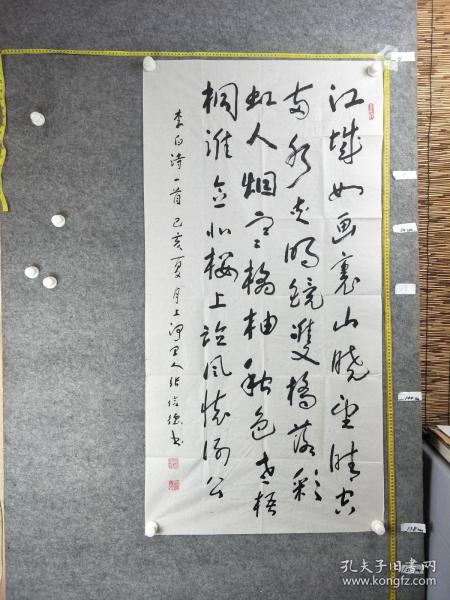 江城如画裏山晓望晴空
两水夹明镜雙橋落彩
虹人烟寒橘柚秋色老梧
桐谁念北楼上临风怀谢公
李白诗一首 己亥夏月上
孔夫子旧书网
www.kongfz.com